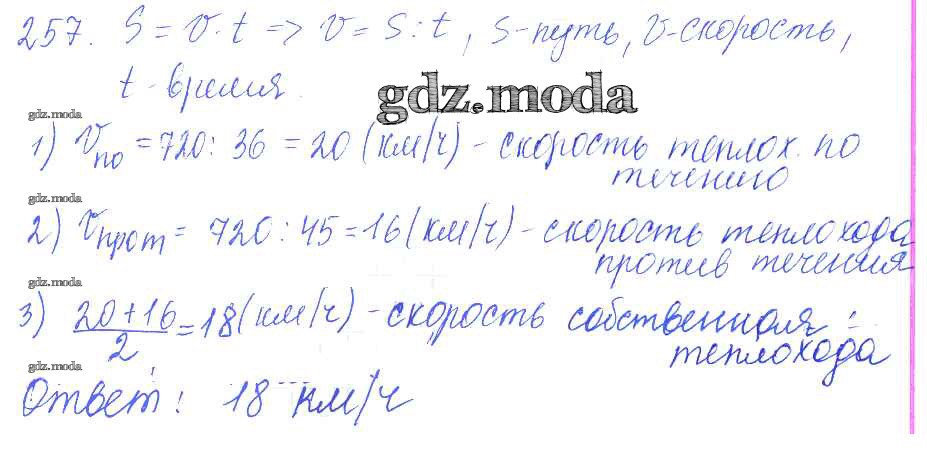 257. S = v · t => v = S : t, S-путь, v-скорость,
t - время.
gdz.moda
gdz.moda
1) v по = 720 : 36 = 20 (км/ч) - скорость теплох. по
течению
gdz.moda
2) v прот = 720 : 45 = 16 (км/ч) - скорость теплохода
против течения
gdz.moda
3) 20 + 16 / 2 = 18 (км/ч) - скорость собственная
теплохода
gdz.moda
Ответ: 18 км/ч